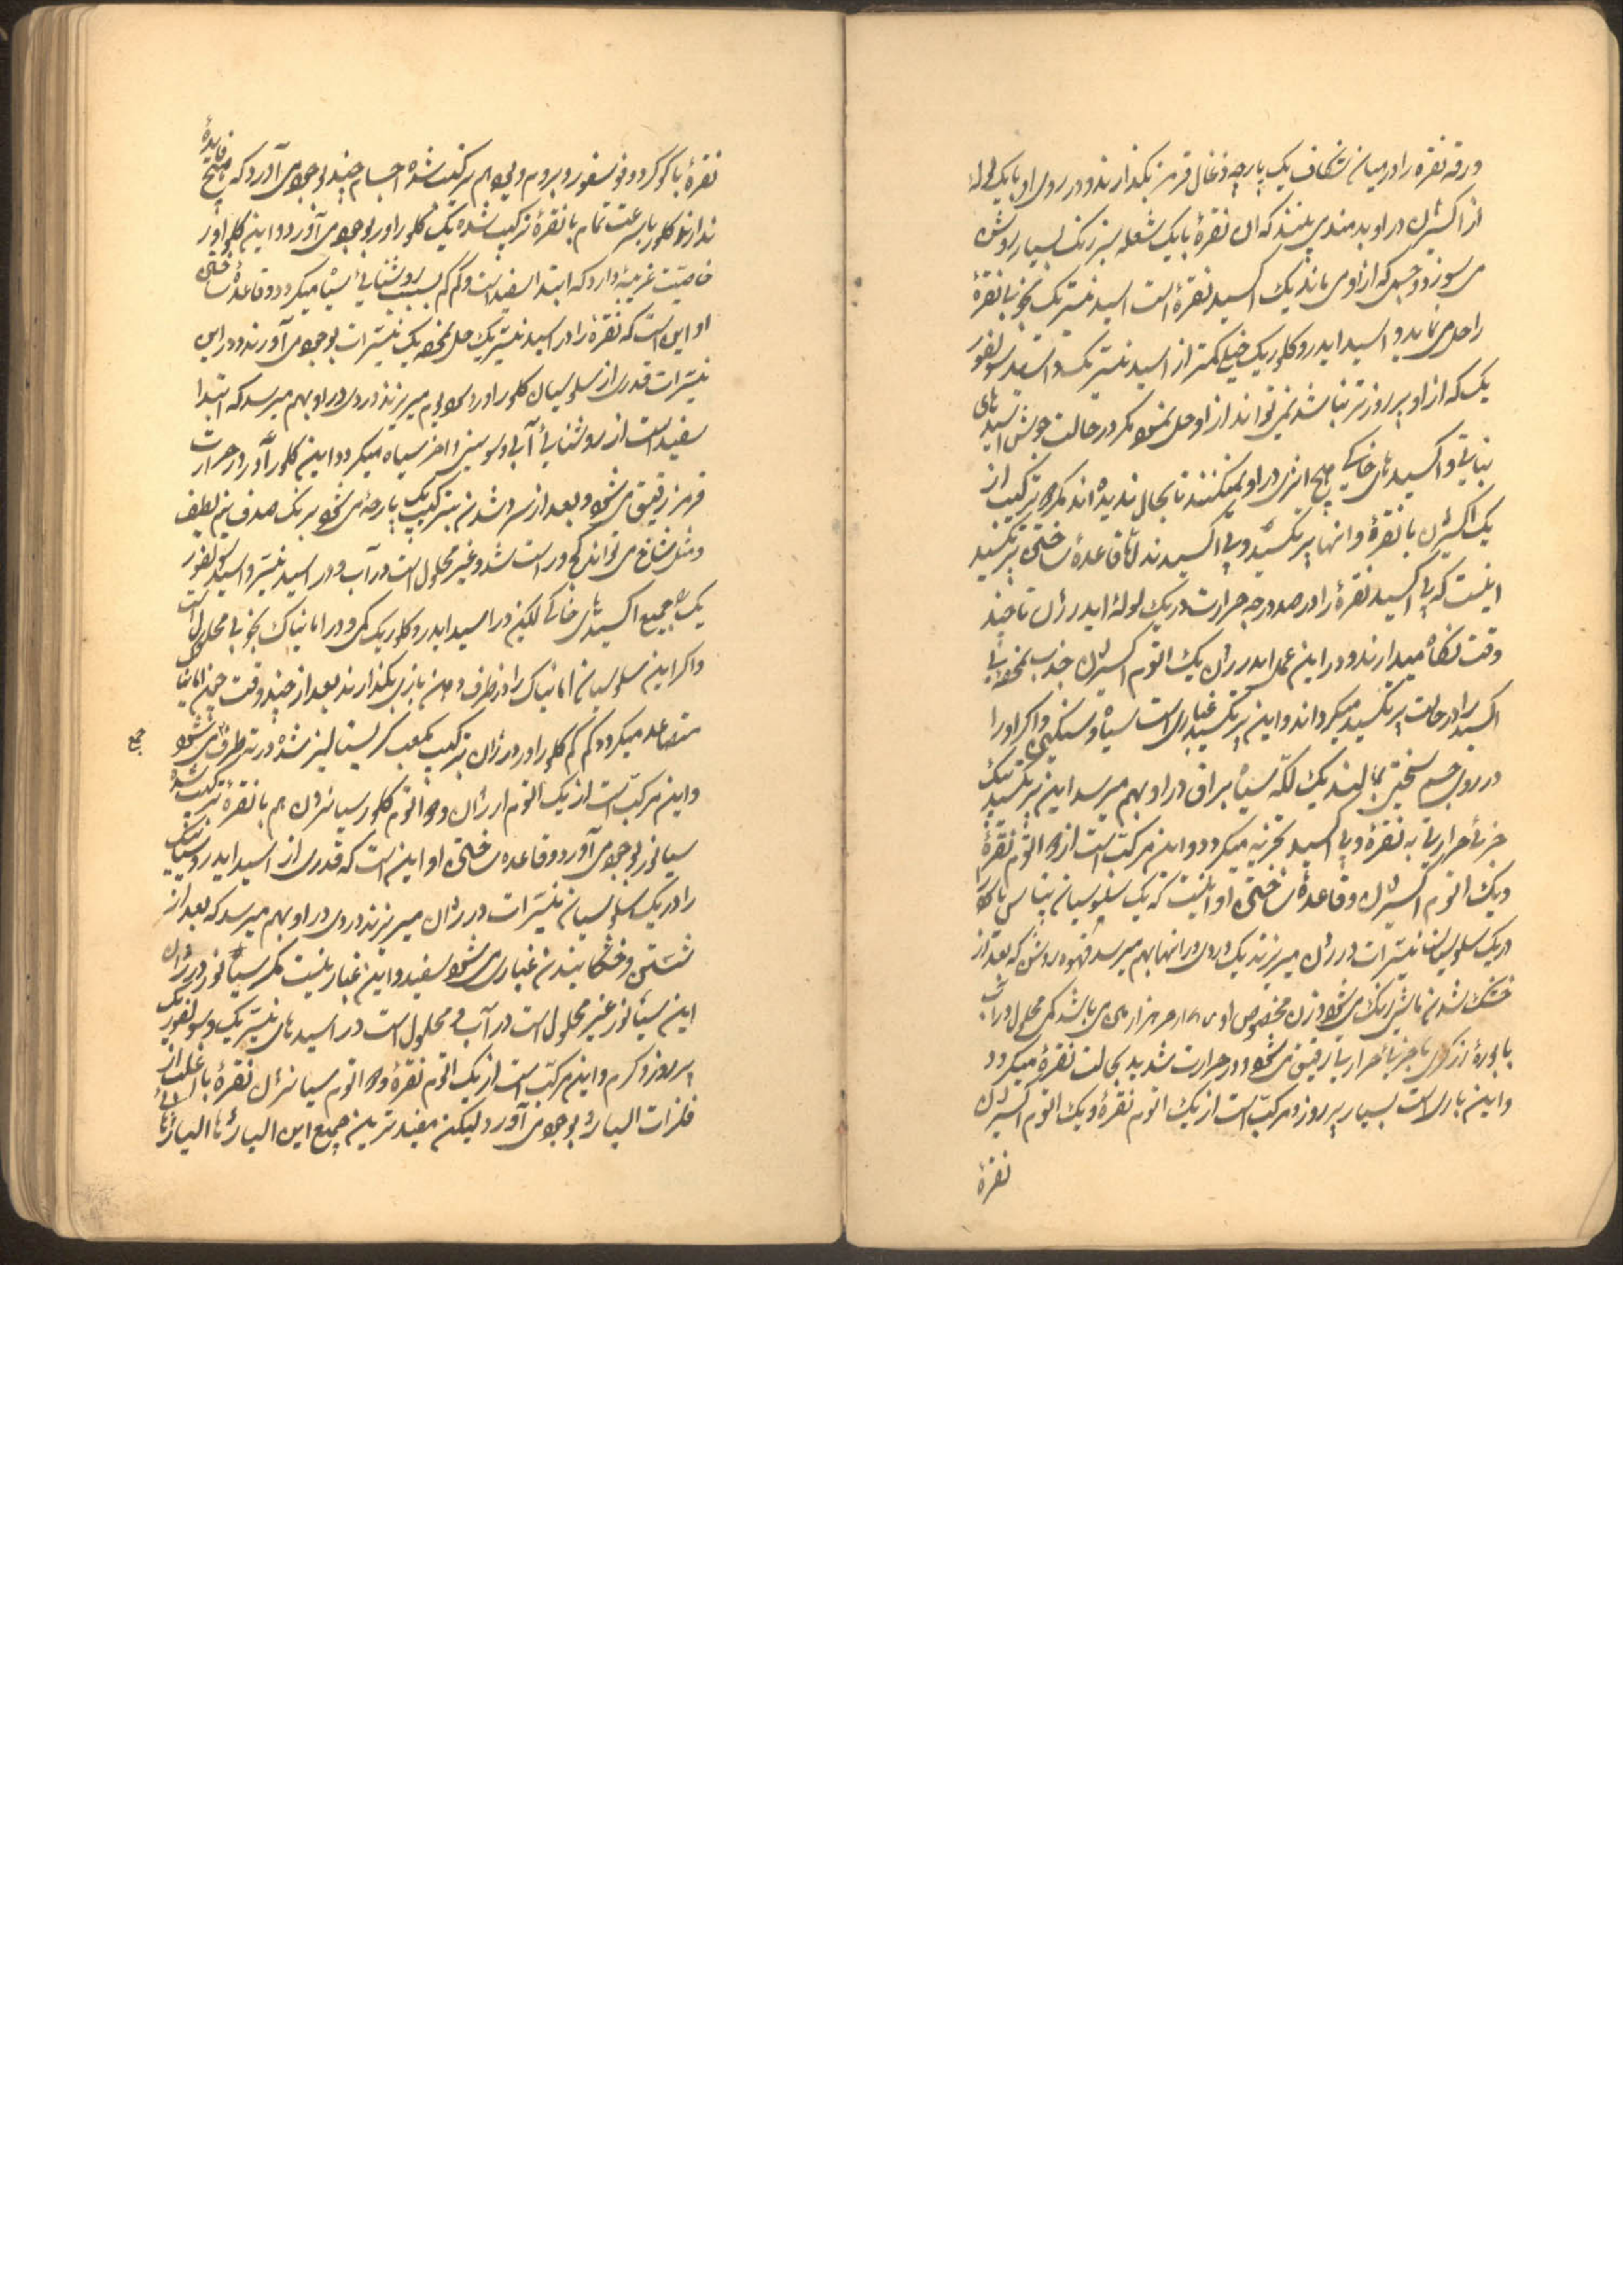 ورقه نقره را در میان شکاف یک پارچه ذغال قرمز بگذارند و در روی او با یک لوله
از اکسیژن در او بدمند می بینند که ان نقرهٔ با یک شعله سبز رنک بسیار روشن
می سوزد و جسمی که از او می ماند یک اکسید نقرهٔ است اسید نیتریک بخوبی نقرهٔ
را حل می نماید و اسید ایدروکلوریک خیلی کمتر از اسید نیتریک و اسید سولفور
یک که از او پر زورتر نباشد نمی تواند از او حل نمود مگر در حالت جوش اسیدهای
نباتی و اکسیدهای خاکی هیچ اثری در او نمیکنند تا بحال ندیده اند مگر دو ترکیب از
یک اکسیژن با نقرهٔ و انها پرتکسید و بی اکسیدند امّا قاعدهٔ ساختن پرتکسید
اینست که بی اکسید نقرهٔ را در صد درجه حرارت در یک لولهٔ ایدرژن تا چند
وقت نگاه میدارند و در این عمل ایدرژن یک اتوم اکسیژن جذب نموده بی
اکسید را در حالت پرتکسید میگرداند و این پرتکسید غباری است سیاه و سنگین و اگر او را
در روی جسم سختی بمالند یک لکّه سیاه براق در او بهم میرسد این پرتکسید بیک
جزئی حرارتی به نقرهٔ و بی اکسید تجزیه میگردد و این مرکب است از دو اتوم نقرهٔ
و یک اتوم اکسیژن و قاعدهٔ ساختن او اینست که یک سلوسیان پتاس یا کلور
در یک سلوسیان نیترات درژن میریزند یک دردی در انها بهم میرسد قهوه روشن که بعد از
خشک شدن ماشی رنک می شود وزن مخصوص او از هر هزار می باشد کمی محلول در اب
با جزئی حرارتی رقیق می شود و در حرارت شدید بحالت نقرهٔ میگردد
و این باری است بسیار پر زور و مرکّب است از یک اتوم نقرهٔ و یک اتوم اکسیژن
نقرهٔ
نقرهٔ با گوگرد و فوسفور و بروم و یود هم ترکیب شده اجسام چند بوجود می آورد که هیچ فایدهٔ
ندارند کلور با سرعت تمام با نقرهٔ ترکیب شده یک کلورور بوجود می آورد و این کلورور
خاصیّت غریبهٔ دارد که ابتدا سفید است و کم کم بسبب روشنایی سیاه میگردد و قاعدهٔ ساختن
او این است که نقرهٔ را در اسید نیتریک حل نموده یک نیترات بوجود می آورند و در این
نیترات قدری از سلوسیان کلورور دسودیوم میریزند دردی در او بهم میرسد که ابتدا
سفید است از روشنایی آبی و سوسنی و اخر سیاه میگردد و این کلورور در حرارت
قرمز رقیق می شود و بعد از سرد شدن بترکیب یک پارچه می شود برنک صدف نیم لطیف
و مثل شاخ می تواند کج و راست شد و غیر محلول است در آب و در اسید نیتریک و اسید سولفور
یک و جمیع اکسیدهای خاکی لیکن در اسید ایدروکلوریک کمی و در امانیاک بخوبی محلول است
و اگر این سلوسیان امانیاک را در ظرف دهن بازی بگذارند بعد از چند وقت چون امانیاک
متصاعد میگردد کم کم کلورور درژان بترکیب مکعب کریستالیز شده در ته ظرف جمع می شود
و این مرکّب است از یک اتوم ارژان و دو اتوم کلور سیانوژن هم با نقرهٔ ترکیب شده
سیانور بوجود می آورد و قاعده ساختن او این است که قدری از اسید ایدروسیانیک
را در یک سلوسیان نیترات درژان میریزند دردی در او بهم میرسد که بعد از
شستن و خشکانیدن غباری می شود سفید و این غبار نیست مگر سیانور درژان
این سیانور غیر محلول است در آب و محلول است در اسیدهای نیتریک و سولفوریک
پر زور و گرم و این مرکّب است از یک اتوم نقرهٔ و دو اتوم سیانوژن نقرهٔ با اغلب از
فلزات الیاژ بوجود می آورد لیکن مفیدترین جمیع این الیاژها الیاژهای